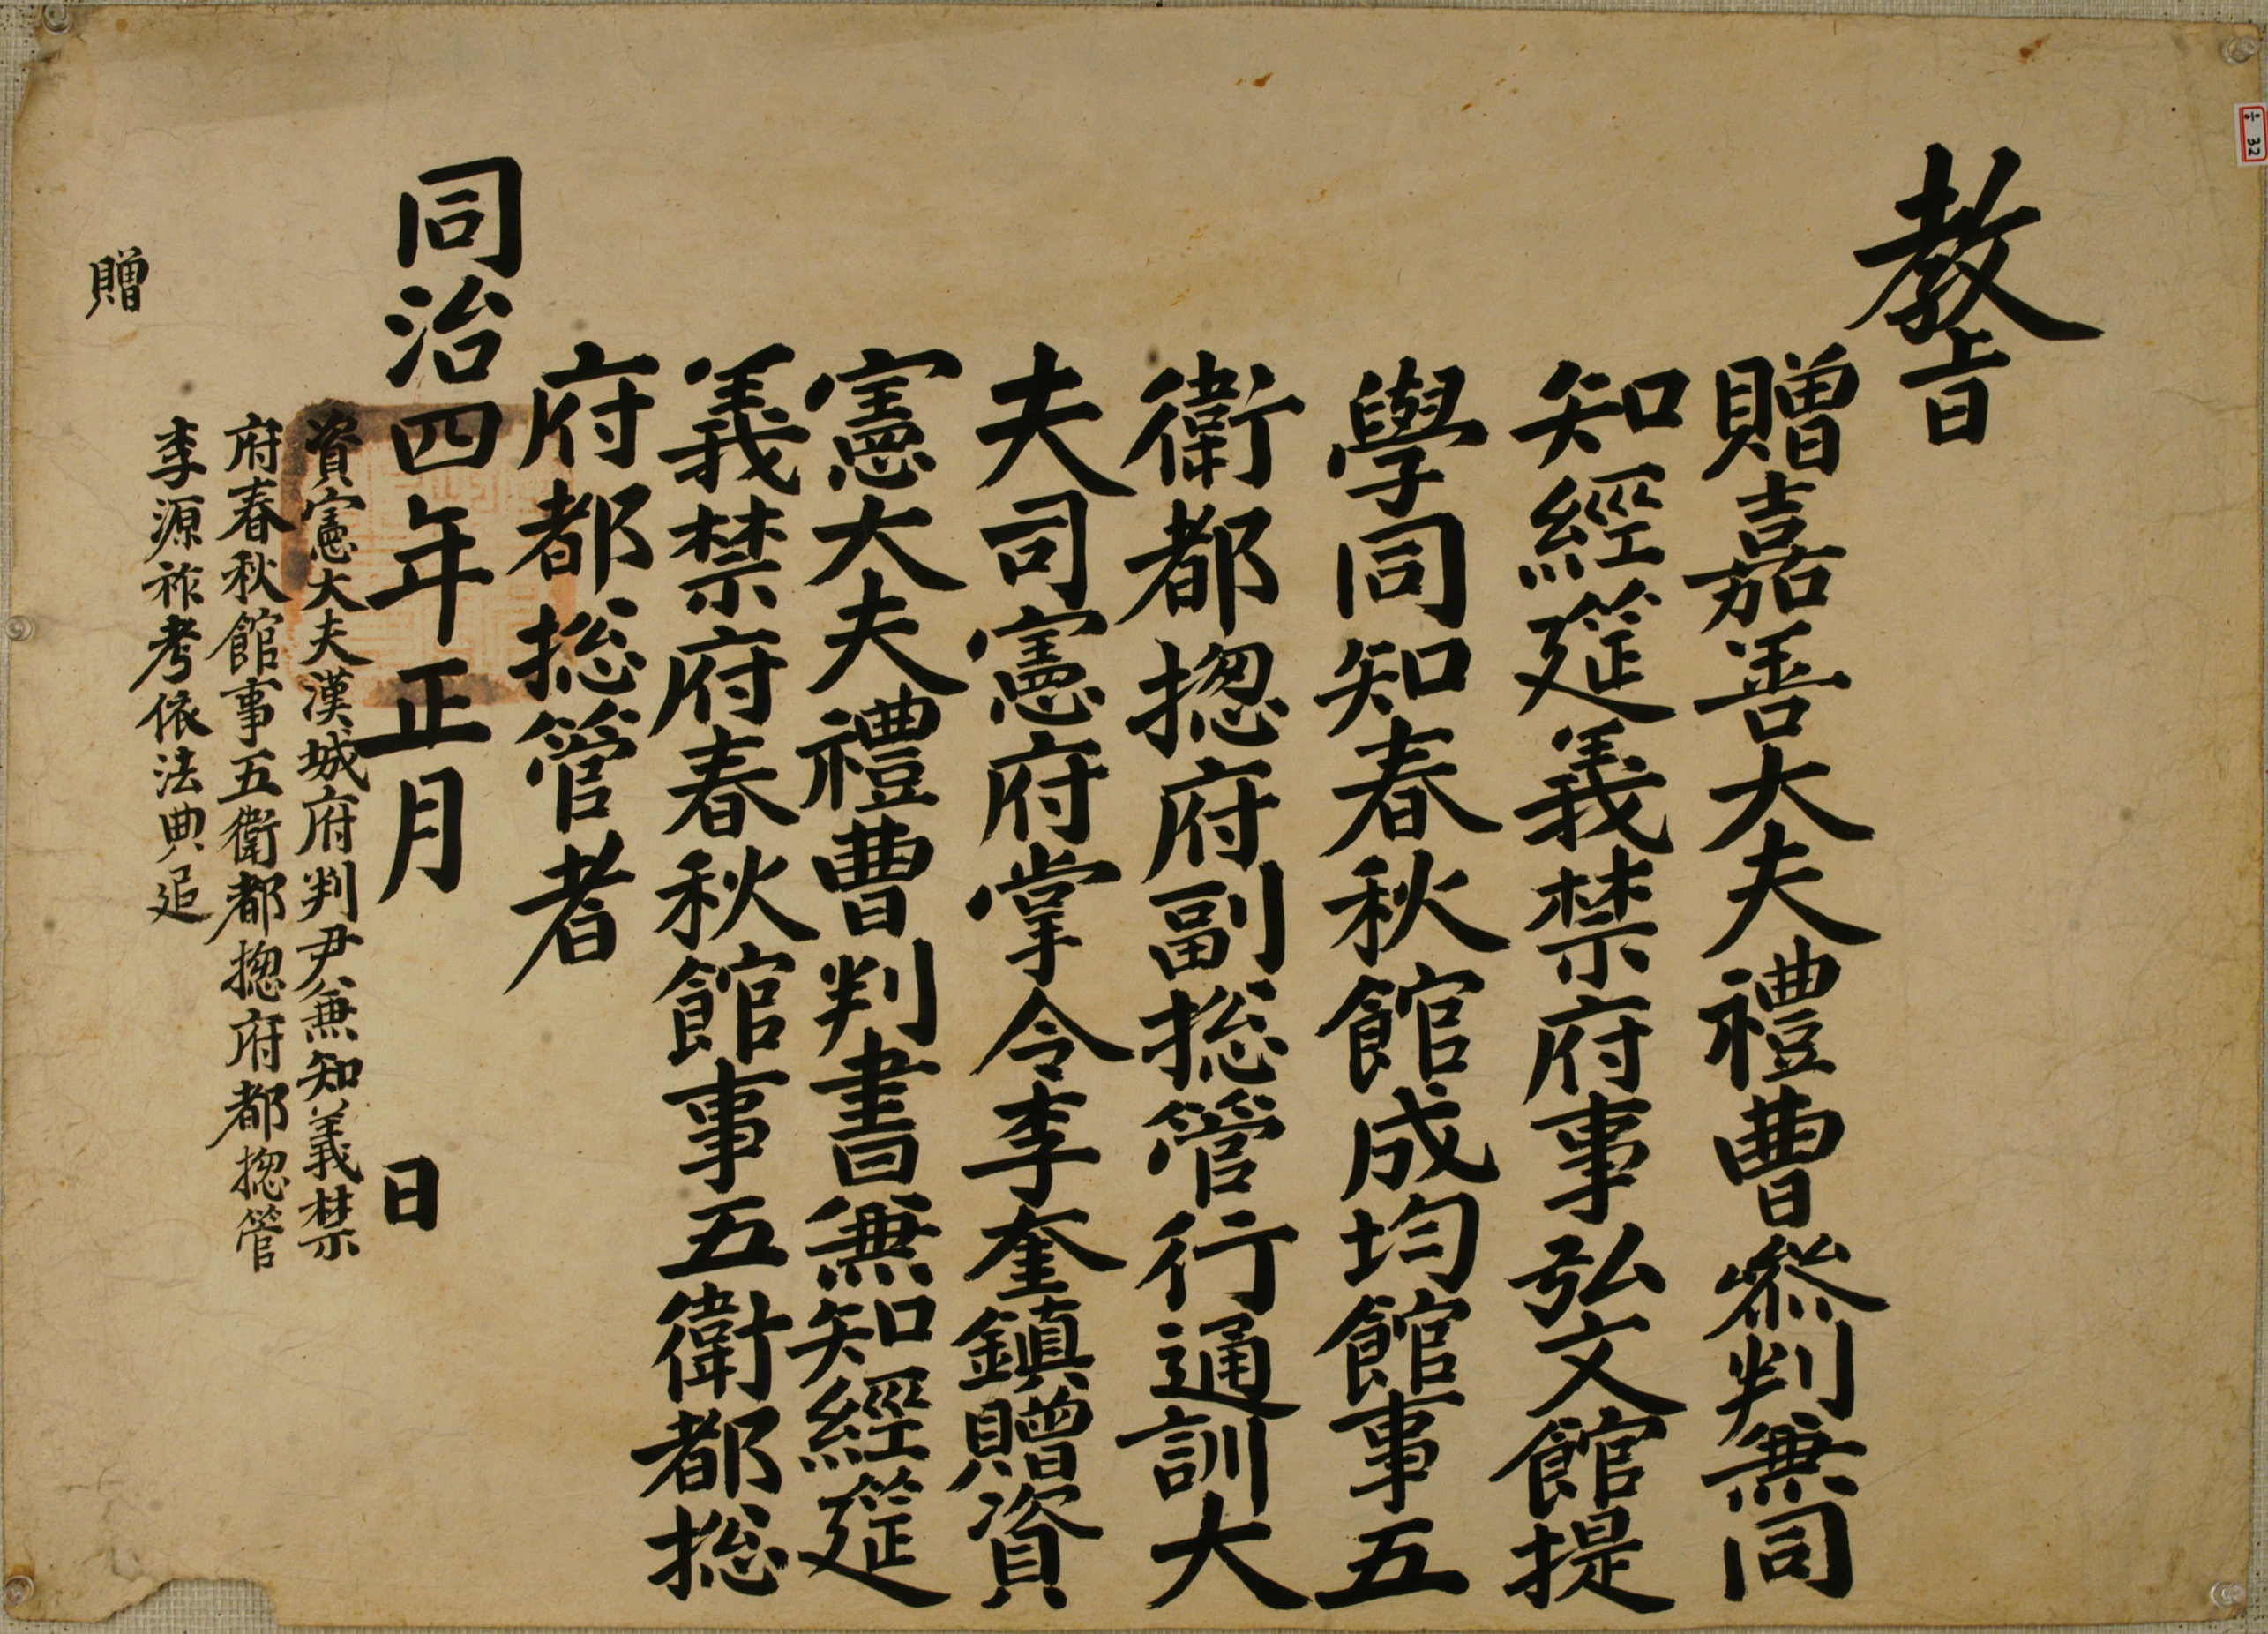 教旨
贈嘉善大夫禮曹叅判兼同
知經筵義禁府事弘文館提
學同知春秋館成均館事五
衛都揔府副摠管行通訓大
夫司憲府掌令李奎鎭贈資
憲大夫禮曹判書兼知經筵
義禁府春秋館事五衛都摠
府都摠管者
同治四年正月 日
資憲大夫漢城府判尹兼知義禁
府春秋館事五衛都揔府都揔管
李源祚考依法典追
贈
32